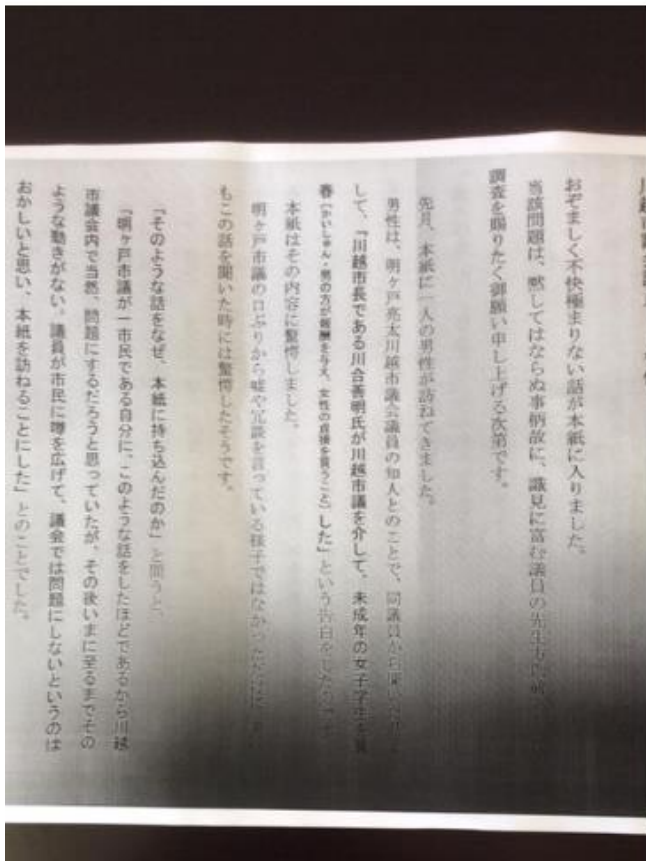 おぞましく不快極まりない話が本紙に入りました。
当該問題は、黙してはならぬ事柄故に、識見に富む議員の先生方に
調査を賜りたく御願い申し上げる次第です。
先月、本紙に一人の男性が訪ねてきました。
男性は、明ヶ戸亮太川越市議会議員の知人とのことで、同議員から
して、『川越市長である川合善明氏が川越市議を介して、未成年の女子学生を買
春(かいしゅん・男の方が報酬を与え、女性の貞操を買うこと)した』という告白をした
本紙はその内容に驚愕しました。
明ヶ戸市議の口ぶりから嘘や冗談を言っている様子ではなかった
もこの話を聞いた時には驚愕したそうです。
「そのような話をなぜ、本紙に持ち込んだのか」と問うと、
「明ヶ戸市議が一市民である自分に、このような話をしたほどであるから川越
市議会内で当然、問題にするだろうと思っていたが、その後いまに至るまでその
ような動きがない。議員が市民に噂を広げて、議会では問題にしないというのは
おかしいと思い、本紙を訪ねることにした」とのことでした。